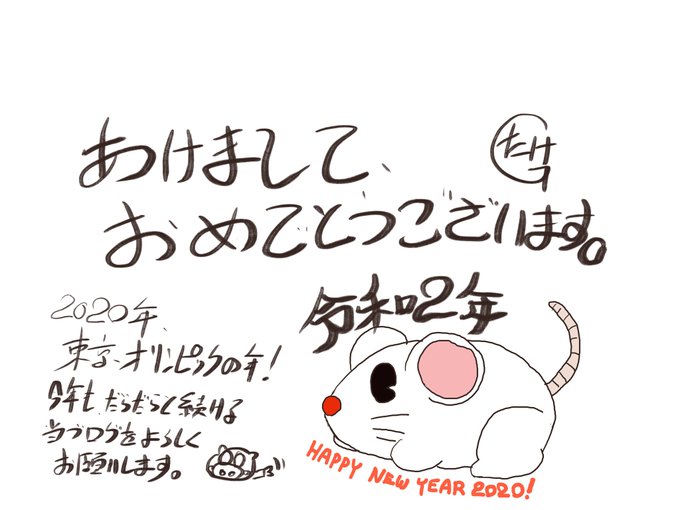 あけまして、
おめでとうございます。
たけ
令和2年
2020年、
東京オリンピックの年!
今年も、だらだらと続ける
当ブログをよろしく
お願いします。
HAPPY NEW YEAR 2020!